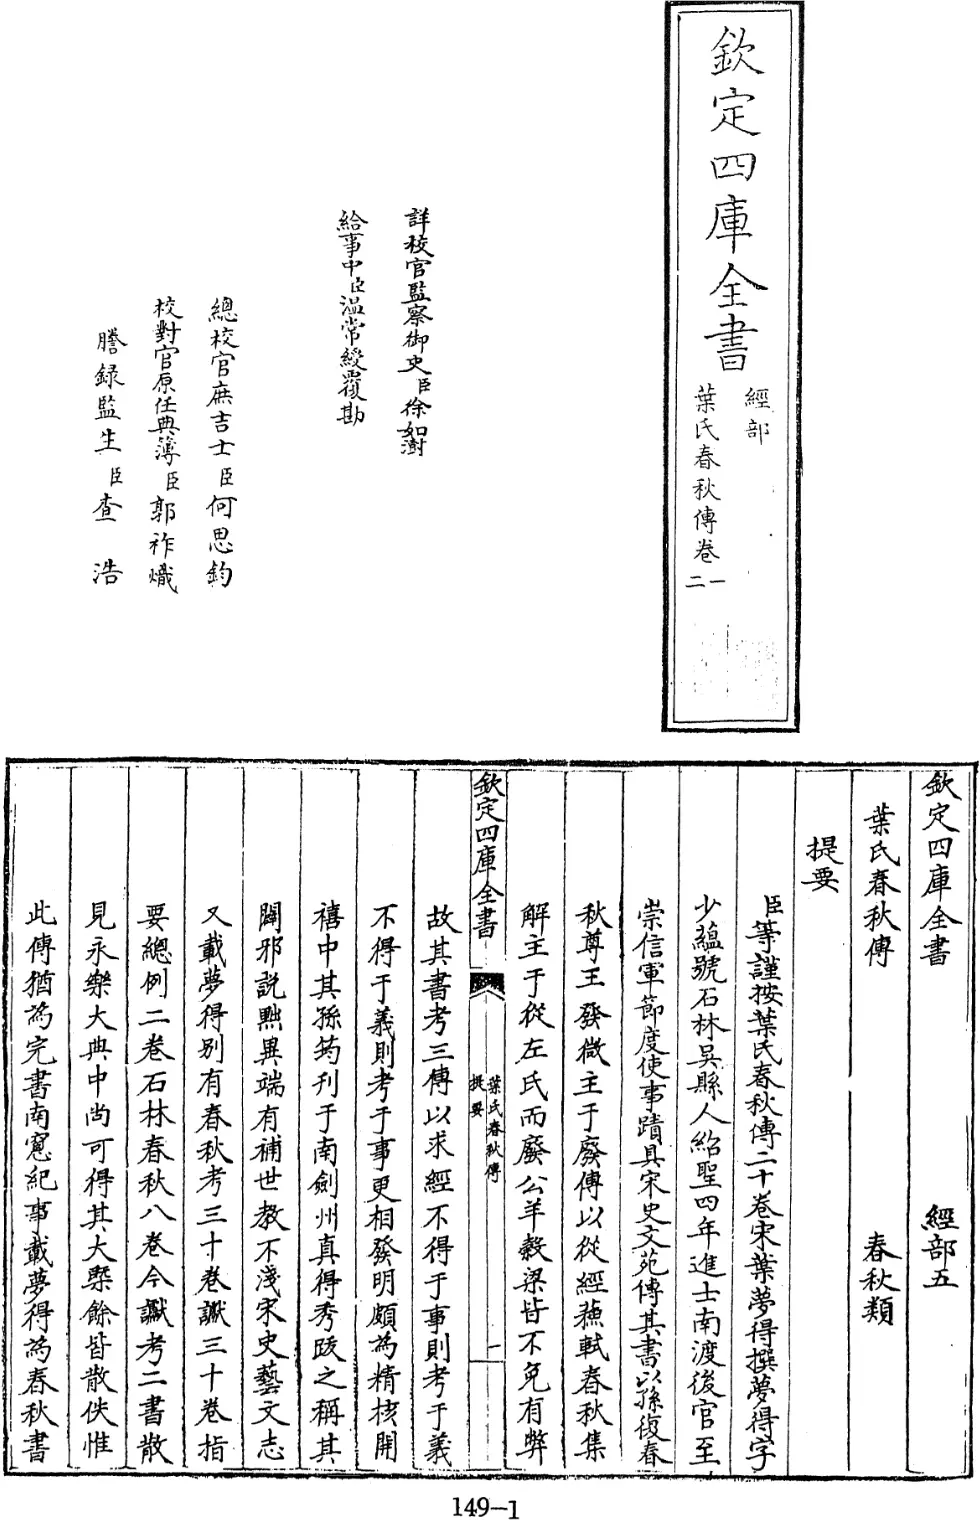 欽定四庫全書
經部
葉氏春秋傳卷一
二
詳校官監察御史臣徐如澍
給事中臣溫常綬覆勘
總校官庶吉士臣何思鈞
校對官原任典簿臣郭祚熾
謄錄監生臣查浩
欽定四庫全書 經部五
葉氏春秋傳 春秋類
提要
臣等謹按葉氏春秋傳二十卷宋葉夢得撰夢得字
少蘊號石林吳縣人紹聖四年進士南渡後官至
崇信軍節度使事蹟具宋史文苑傳其書以孫復春
秋尊王發微主于廢傳以從經蘇軾春秋集
解主于從左氏而廢公羊穀梁皆不免有弊
欽定四庫全書
葉氏春秋傳
提要
一
故其書考三傳以求經不得于事則考于義
不得于義則考于事更相發明頗為精核開
禧中其孫筠刊于南劍州真得秀跋之稱其
闢邪說黜異端有補世教不淺宋史藝文志
又載夢得別有春秋考三十卷讞三十卷指
要總例二卷石林春秋八卷今讞考二書散
見永樂大典中尚可得其大槩餘皆散佚惟
此傳猶為完書南窻紀事載夢得為春秋書
149-1